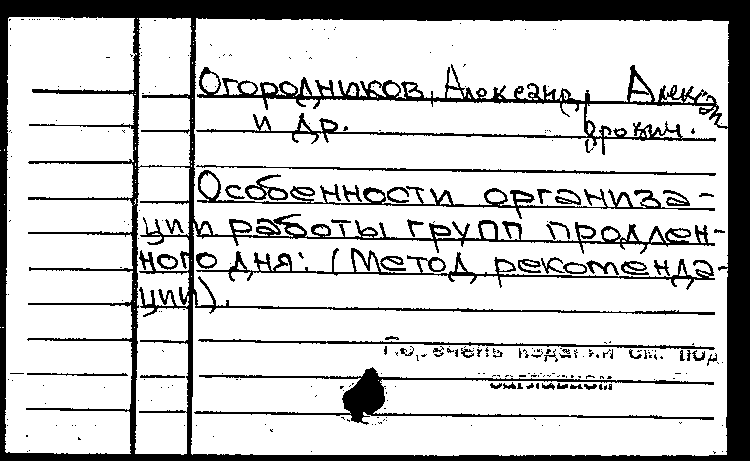 Огородников, Александр Александрович.
и др.
Особенности организа-
ции работы групп продлен-
ного дня: (Метод. рекоменда-
ции).
Перечень изданий см. под
заглавием